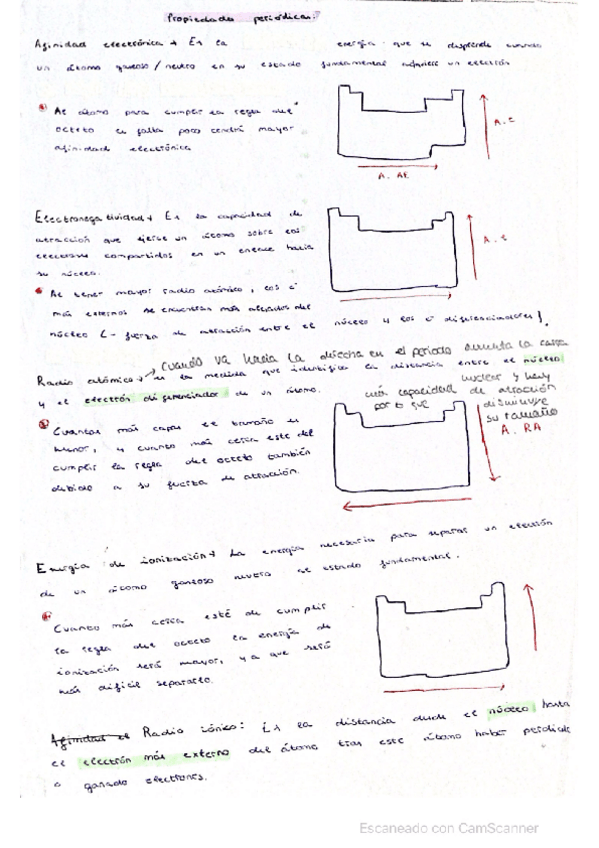 Propiedades periódicas:
Afinidad electrónica → Es la energía que se desprende cuando
un átomo gaseoso / neutro en su estado fundamental adquiere un electrón
Al átomo para cumplir la regla del
octeto le falta poco tendrá mayor
afinidad electrónica
A. E
A. AE
Electronegatividad → Es la capacidad de
atracción que ejerce un átomo sobre los
electrones compartidos en un enlace hacia
su núcleo.
A. E
Al tener mayor radio atómico, los e⁻
más externos se encuentran más alejados del
núcleo (- fuerza de atracción entre el núcleo y los e⁻ diferenciadores).
cuando va hacia la derecha en el periodo aumenta la carga
Radio atómico → es la medida que identifica la distancia entre el núcleo
nuclear y hay
y el electrón diferenciador de un átomo.
más capacidad de atracción
por lo que disminuye
su tamaño
Cuantas más capas el tamaño es
menor, y cuanto más cerca este del
cumplir la regla del octeto también
debido a su fuerza de atracción.
A. RA
Energía de ionización → La energía necesaria para separar un electrón
de un átomo gaseoso neutro estado fundamental.
Cuanto más cerca esté de cumplir
la regla del octeto la energía de
ionización será mayor, ya que será
más difícil separarlo.
Afinidad el Radio iónico: Es la distancia desde el núcleo hasta
el electrón más externo del átomo tras este átomo haber perdido
o ganado electrones.
Escaneado con CamScanner